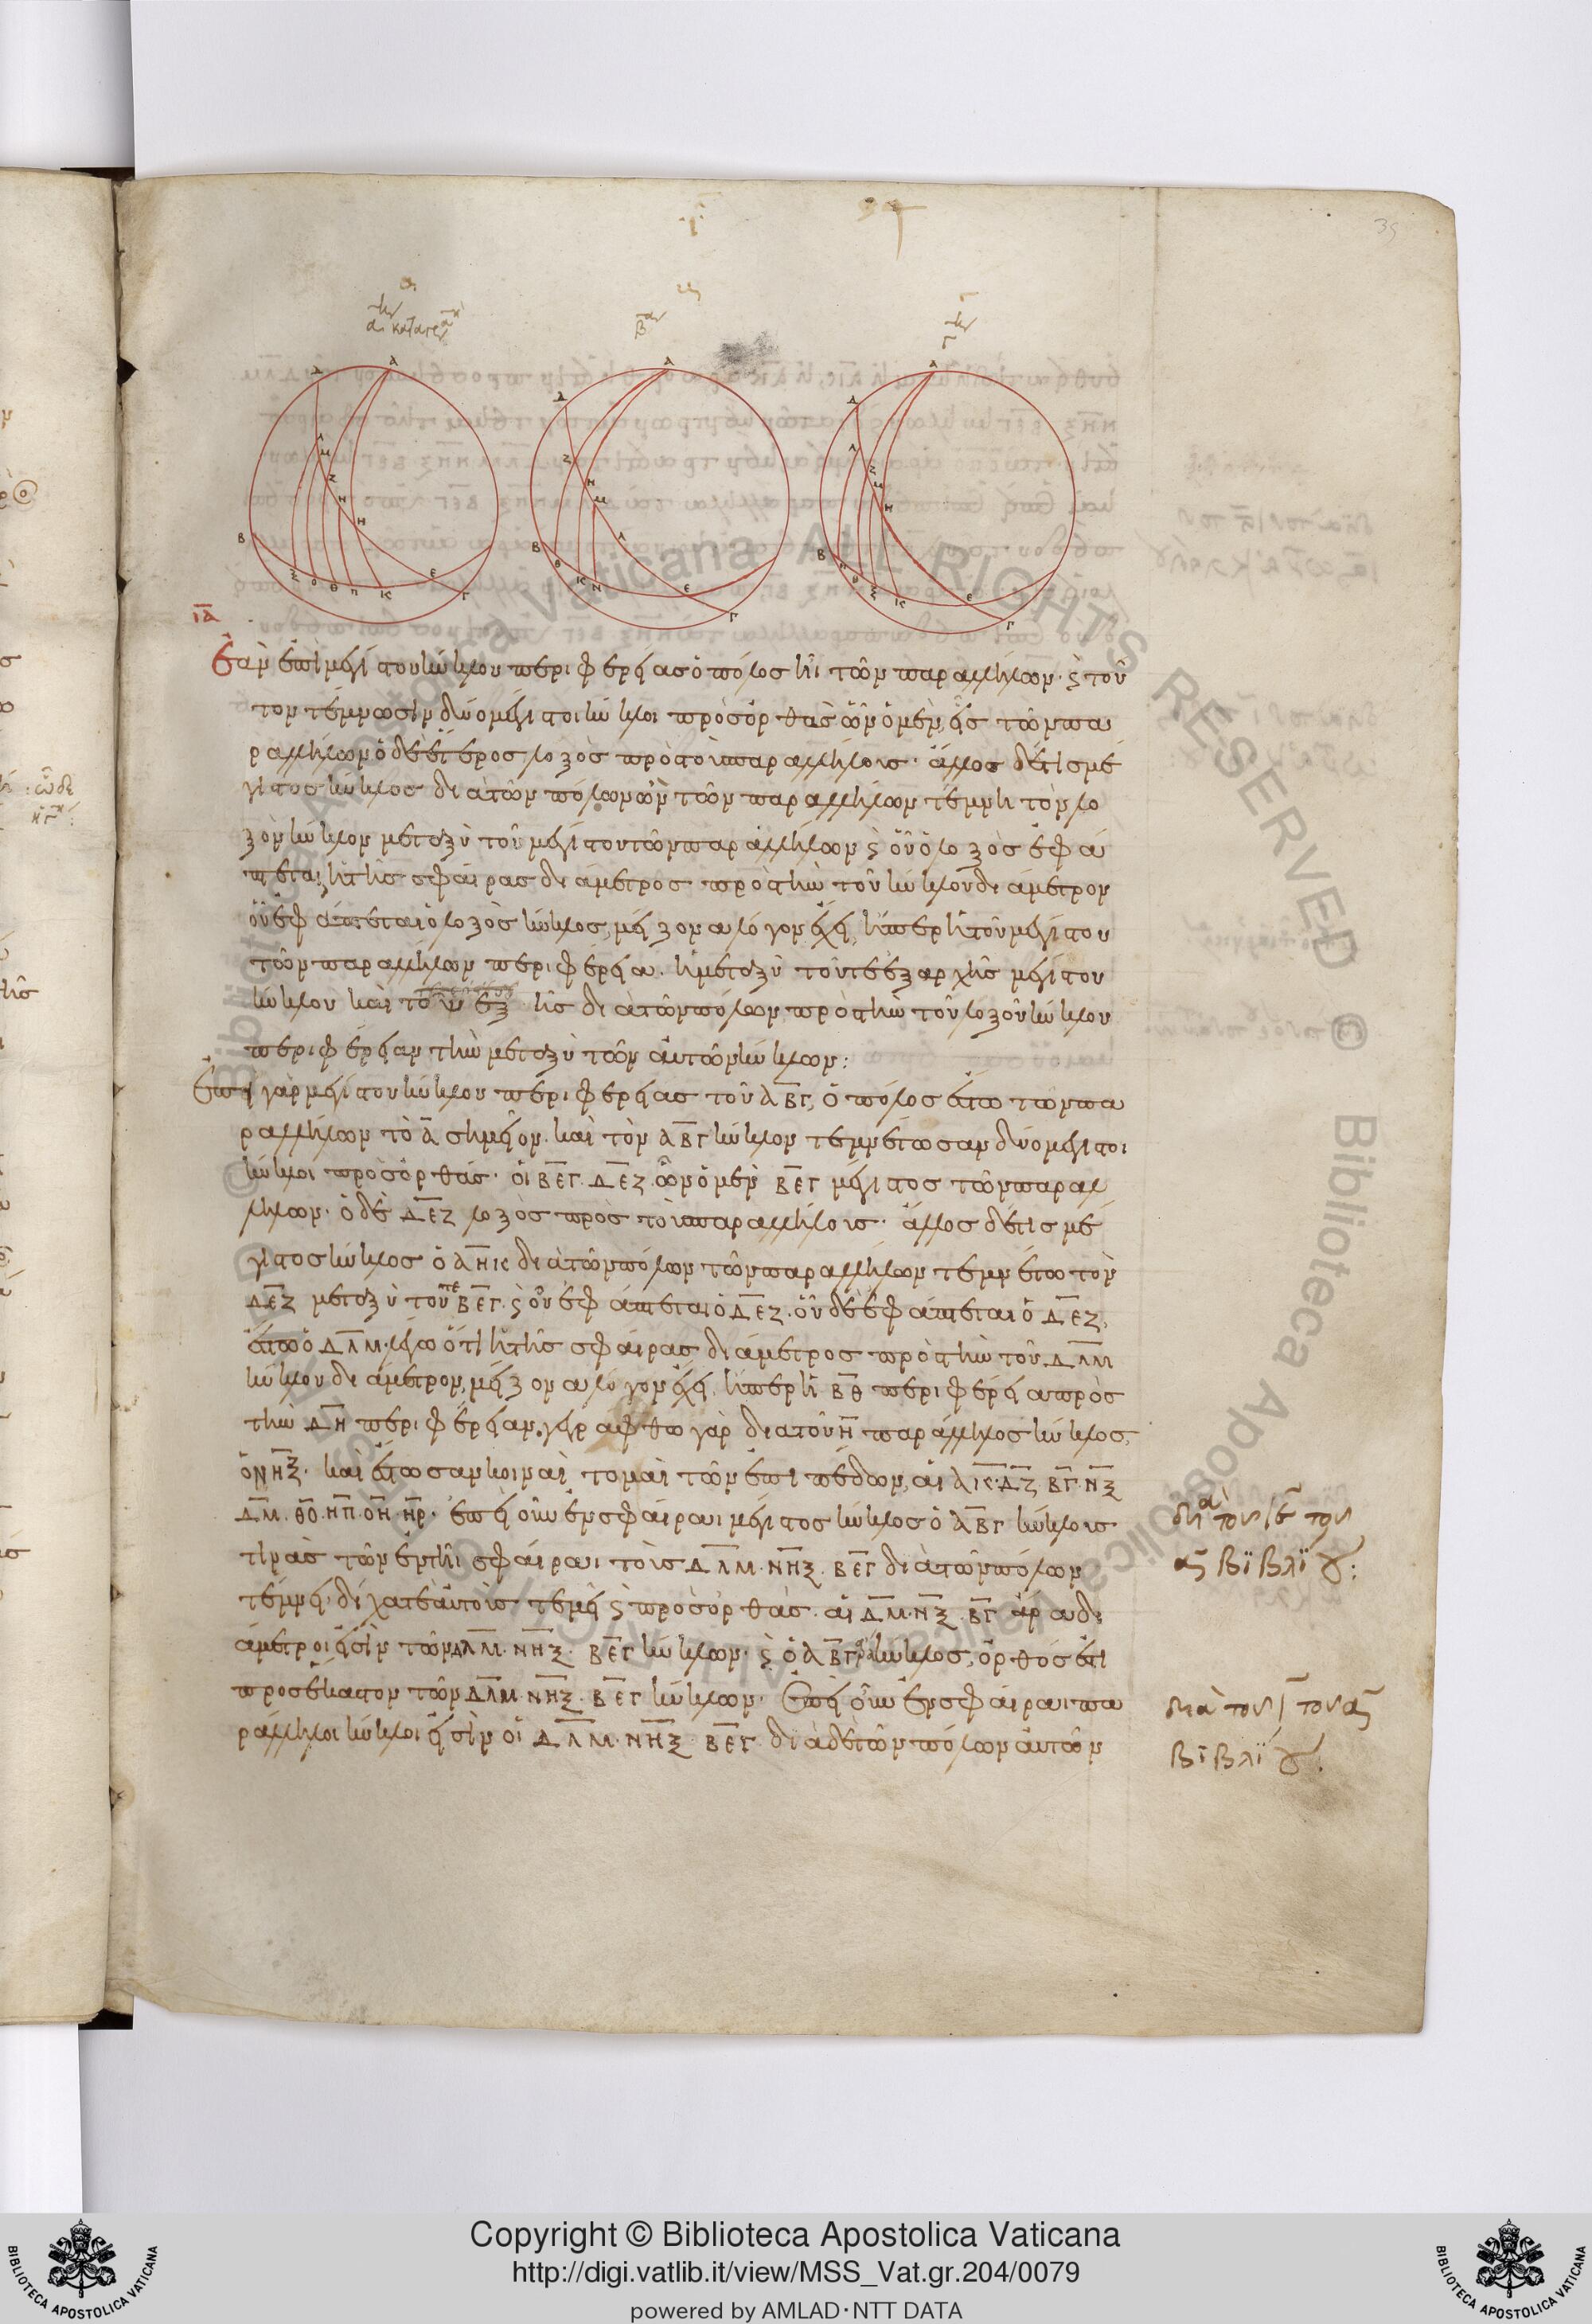 ια
Ἐὰν ἐπὶ μεγίστου κύκλου περιφερείας ὁ πόλος ἦι τῶν παραλλήλων· ϛ τοῦ
τον τέμνωσιν δύο μέγιστοι κύκλοι πρὸς ὀρθὰς ὧν ὁ μὲν, εἷς τῶν πα
ραλλήλων ὁ δὲ ἕτερος λοξὸς πρὸς τοὺς παραλλήλους· ἄλλος δέ τις μέ
γιστος κύκλος διὰ τῶν πόλων ὢν τῶν παραλλήλων τέμνηι τὸν λο
ξὸν κύκλον μεταξὺ τοῦ μεγίστου τῶν παραλλήλων ϛ οὗ ὁ λοξὸς ἐφά
πτεται, ἡ τῆς σφαίρας διάμετρος πρὸς τὴν τοῦ κύκλου διάμετρον
οὗ ἐφάπτεται ὁ λοξὸς κύκλος, μείζονα λόγον ἔχει, ἤπερ ἡ τοῦ μεγίστου
τῶν παραλλήλων περιφέρεια· ἡ μεταξὺ τοῦ τε ἐξ ἀρχῆς μεγίστου
κύκλου καὶ τοῦ ἑξῆς διὰ τῶν πόλων, πρὸς τὴν τοῦ λοξοῦ κύκλου
περιφέρειαν τὴν μεταξὺ τῶν αὐτῶν κύκλων:
Ἐπὶ γὰρ μεγίστου κύκλου περιφερείας τοῦ ΑΒΓ, ὁ πόλος ἔστω τῶν πα
ραλλήλων τὸ Α σημεῖον. καὶ τὸν ΑΒΓ κύκλον τεμνέτωσαν δύο μέγιστοι
κύκλοι πρὸς ὀρθάς· οἱ ΒΕΓ. ΔΕΖ. ὧν ὁ μὲν ΒΕΓ μέγιστος τῶν παραλ
λήλων· ὁ δὲ ΔΕΖ λοξὸς πρὸς τοὺς παραλλήλους· ἄλλος δέ τις μέ
γιστος κύκλος ὁ ΑΗΚ διὰ τῶν πόλων τῶν παραλλήλων τεμνέτω τὸν
ΔΕΖ μεταξὺ τοῦ τε ΒΕΓ. ϛ οὗ ἐφάπτεται ὁ ΔΕΖ. οὗ δὲ ἐφάπτεται ὁ ΔΕΖ,
ἔστω ὁ ΔΛΜ. λέγω ὅτι ἡ τῆς σφαίρας διάμετρος πρὸς τὴν τοῦ ΔΛΜ
κύκλου διάμετρον, μείζονα λόγον ἔχει, ἤπερ ἡ ΒΘ περιφέρεια πρὸς
τὴν ΔΗ περιφέρειαν. γεγράφθω γὰρ διὰ τοῦ Η παράλληλος κύκλος,
ὁ ΝΗΞ. καὶ ἔστωσαν κοιναὶ τομαὶ τῶν ἐπιπέδων, αἱ ΑΚ. ΔΖ. ΒΓ. ΝΞ
ΔΜ. ΘΟ. ΗΠ. ΟΗ. ΗΡ. ἐπεὶ οὖν ἐν σφαίραι μέγιστος κύκλος ὁ ΑΒΓ κύκλους
τινὰς τῶν ἐν τῆι σφαίραι τοὺς ΔΛΜ. ΝΗΞ. ΒΕΓ διὰ τῶν πόλων
τέμνει, δίχα τε αὐτοὺς τεμεῖ ϛ πρὸς ὀρθάς. αἱ ΔΜ. ΝΞ. ΒΓ ἄρα δι
άμετροι εἰσὶν τῶν ΔΛΜ. ΝΗΞ. ΒΕΓ κύκλων. ϛ ὁ ΑΒΓ κύκλος, ὀρθός ἐστι
πρὸς ἕκαστον τῶν ΔΛΜ. ΝΗΞ. ΒΕΓ κύκλων. Ἐπεὶ οὖν ἐν σφαίραι πα
ράλληλοι κύκλοι εἰσὶν οἱ ΔΛΜ. ΝΗΞ. ΒΕΓ. διὰ δὲ τῶν πόλων αὐτῶν
διὰ του ιε του
α βϊβλϊου:
διὰ του ι του α
βϊβλϊου:
Copyright © Biblioteca Apostolica Vaticana
http://digi.vatlib.it/view/MSS_Vat.gr.204/0079
powered by AMLAD·NTT DATA
BIBLIOTECA APOSTOLICA VATICANA
BIBLIOTECA APOSTOLICA VATICANA